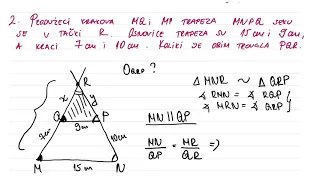 2. PRODUŽECI KRAKOVA MQ I MP TRAPEZA MNPQ SEKU
SE U TAČKI R. OSNOVICE TRAPEZA SU 15cm I 9cm,
A KRACI 7cm I 10cm. KOLIKI JE OBIM TROUGLA PQR.
OPQR ?
R
x y
Q P
9cm
7cm
10cm
M 15cm N
△ MNR ~ △ QRP
∢ RMN = ∢ RQP
∢ MRN = ∢ QRP
MN || QP
MN/QP = MR/QR =>